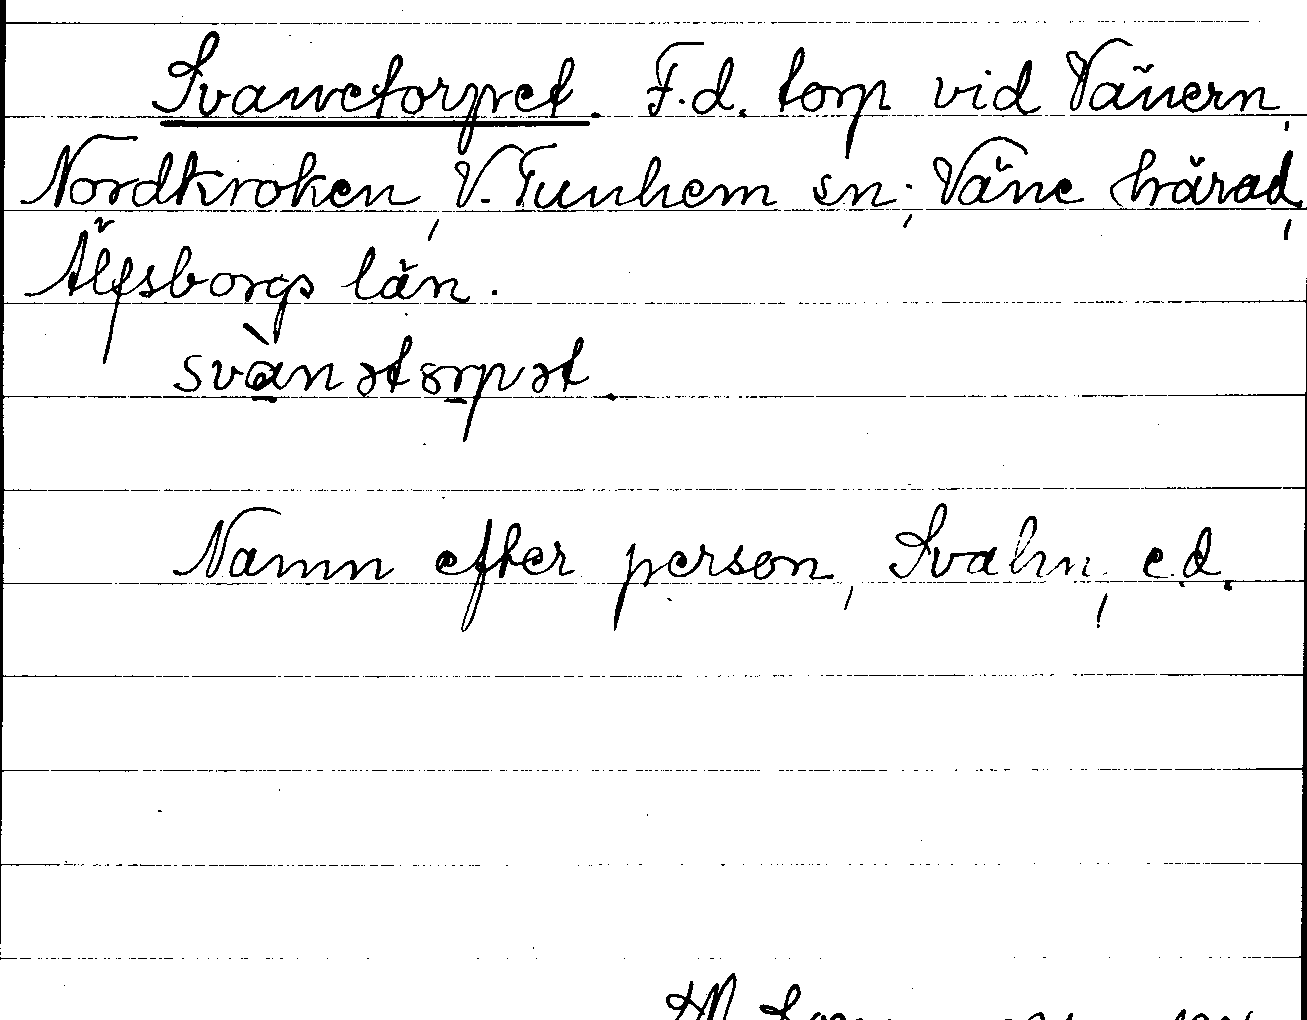 Svanetorpet. F.d. torp vid Vänern,
Nordkroken, V. Tunhem sn; Väne härad,
Älfsborgs län.
svànətorpət.
Namn efter person, Svahn, e.d.